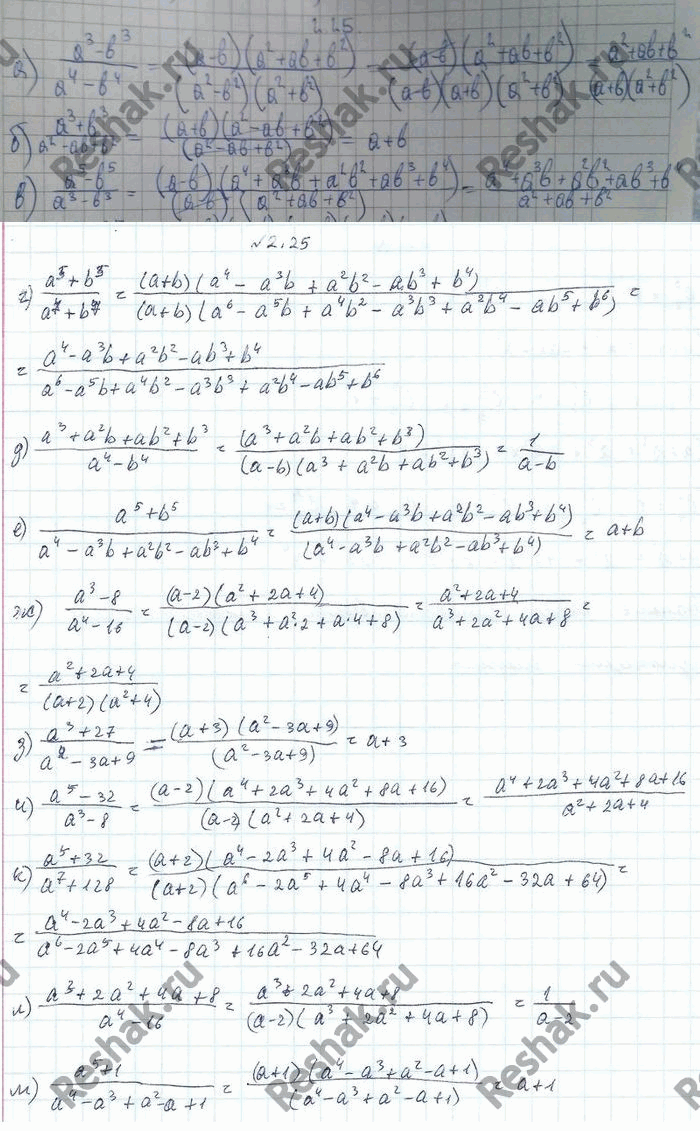 2.25.
а) (a³-b³)/(a⁴-b⁴) = (a-b)(a²+ab+b²)/((a²-b²)(a²+b²)) = (a-b)(a²+ab+b²)/((a-b)(a+b)(a²+b²)) = (a²+ab+b²)/((a+b)(a²+b²))
б) (a³+b³)/(a²-ab+b²) = (a+b)(a²-ab+b²)/(a²-ab+b²) = a+b
в) (a⁵-b⁵)/(a³-b³) = (a-b)(a⁴+a³b+a²b²+ab³+b⁴)/((a-b)(a²+ab+b²)) = (a⁴+a³b+a²b²+ab³+b⁴)/(a²+ab+b²)
№2.25
г) (a⁵+b⁵)/(a⁷+b⁷) = (a+b)(a⁴-a³b+a²b²-ab³+b⁴)/((a+b)(a⁶-a⁵b+a⁴b²-a³b³+a²b⁴-ab⁵+b⁶)) =
= (a⁴-a³b+a²b²-ab³+b⁴)/(a⁶-a⁵b+a⁴b²-a³b³+a²b⁴-ab⁵+b⁶)
д) (a³+a²b+ab²+b³)/(a⁴-b⁴) = (a³+a²b+ab²+b³)/((a-b)(a³+a²b+ab²+b³)) = 1/(a-b)
е) (a⁵+b⁵)/(a⁴-a³b+a²b²-ab³+b⁴) = (a+b)(a⁴-a³b+a²b²-ab³+b⁴)/(a⁴-a³b+a²b²-ab³+b⁴) = a+b
ж) (a³-8)/(a⁴-16) = (a-2)(a²+2a+4)/((a-2)(a³+a²·2+a·4+8)) = (a²+2a+4)/(a³+2a²+4a+8) =
= (a²+2a+4)/((a+2)(a²+4))
з) (a³+27)/(a²-3a+9) = (a+3)(a²-3a+9)/(a²-3a+9) = a+3
и) (a⁵-32)/(a³-8) = (a-2)(a⁴+2a³+4a²+8a+16)/((a-2)(a²+2a+4)) = (a⁴+2a³+4a²+8a+16)/(a²+2a+4)
к) (a⁵+32)/(a⁷+128) = (a+2)(a⁴-2a³+4a²-8a+16)/((a+2)(a⁶-2a⁵+4a⁴-8a³+16a²-32a+64)) =
= (a⁴-2a³+4a²-8a+16)/(a⁶-2a⁵+4a⁴-8a³+16a²-32a+64)
л) (a³+2a²+4a+8)/(a⁴-16) = (a³+2a²+4a+8)/((a-2)(a³+2a²+4a+8)) = 1/(a-2)
м) (a⁵+1)/(a⁴-a³+a²-a+1) = (a+1)(a⁴-a³+a²-a+1)/(a⁴-a³+a²-a+1) = a+1
Reshak.ru
Reshak.ru
Reshak.ru
Reshak.ru
Reshak.ru
Reshak.ru